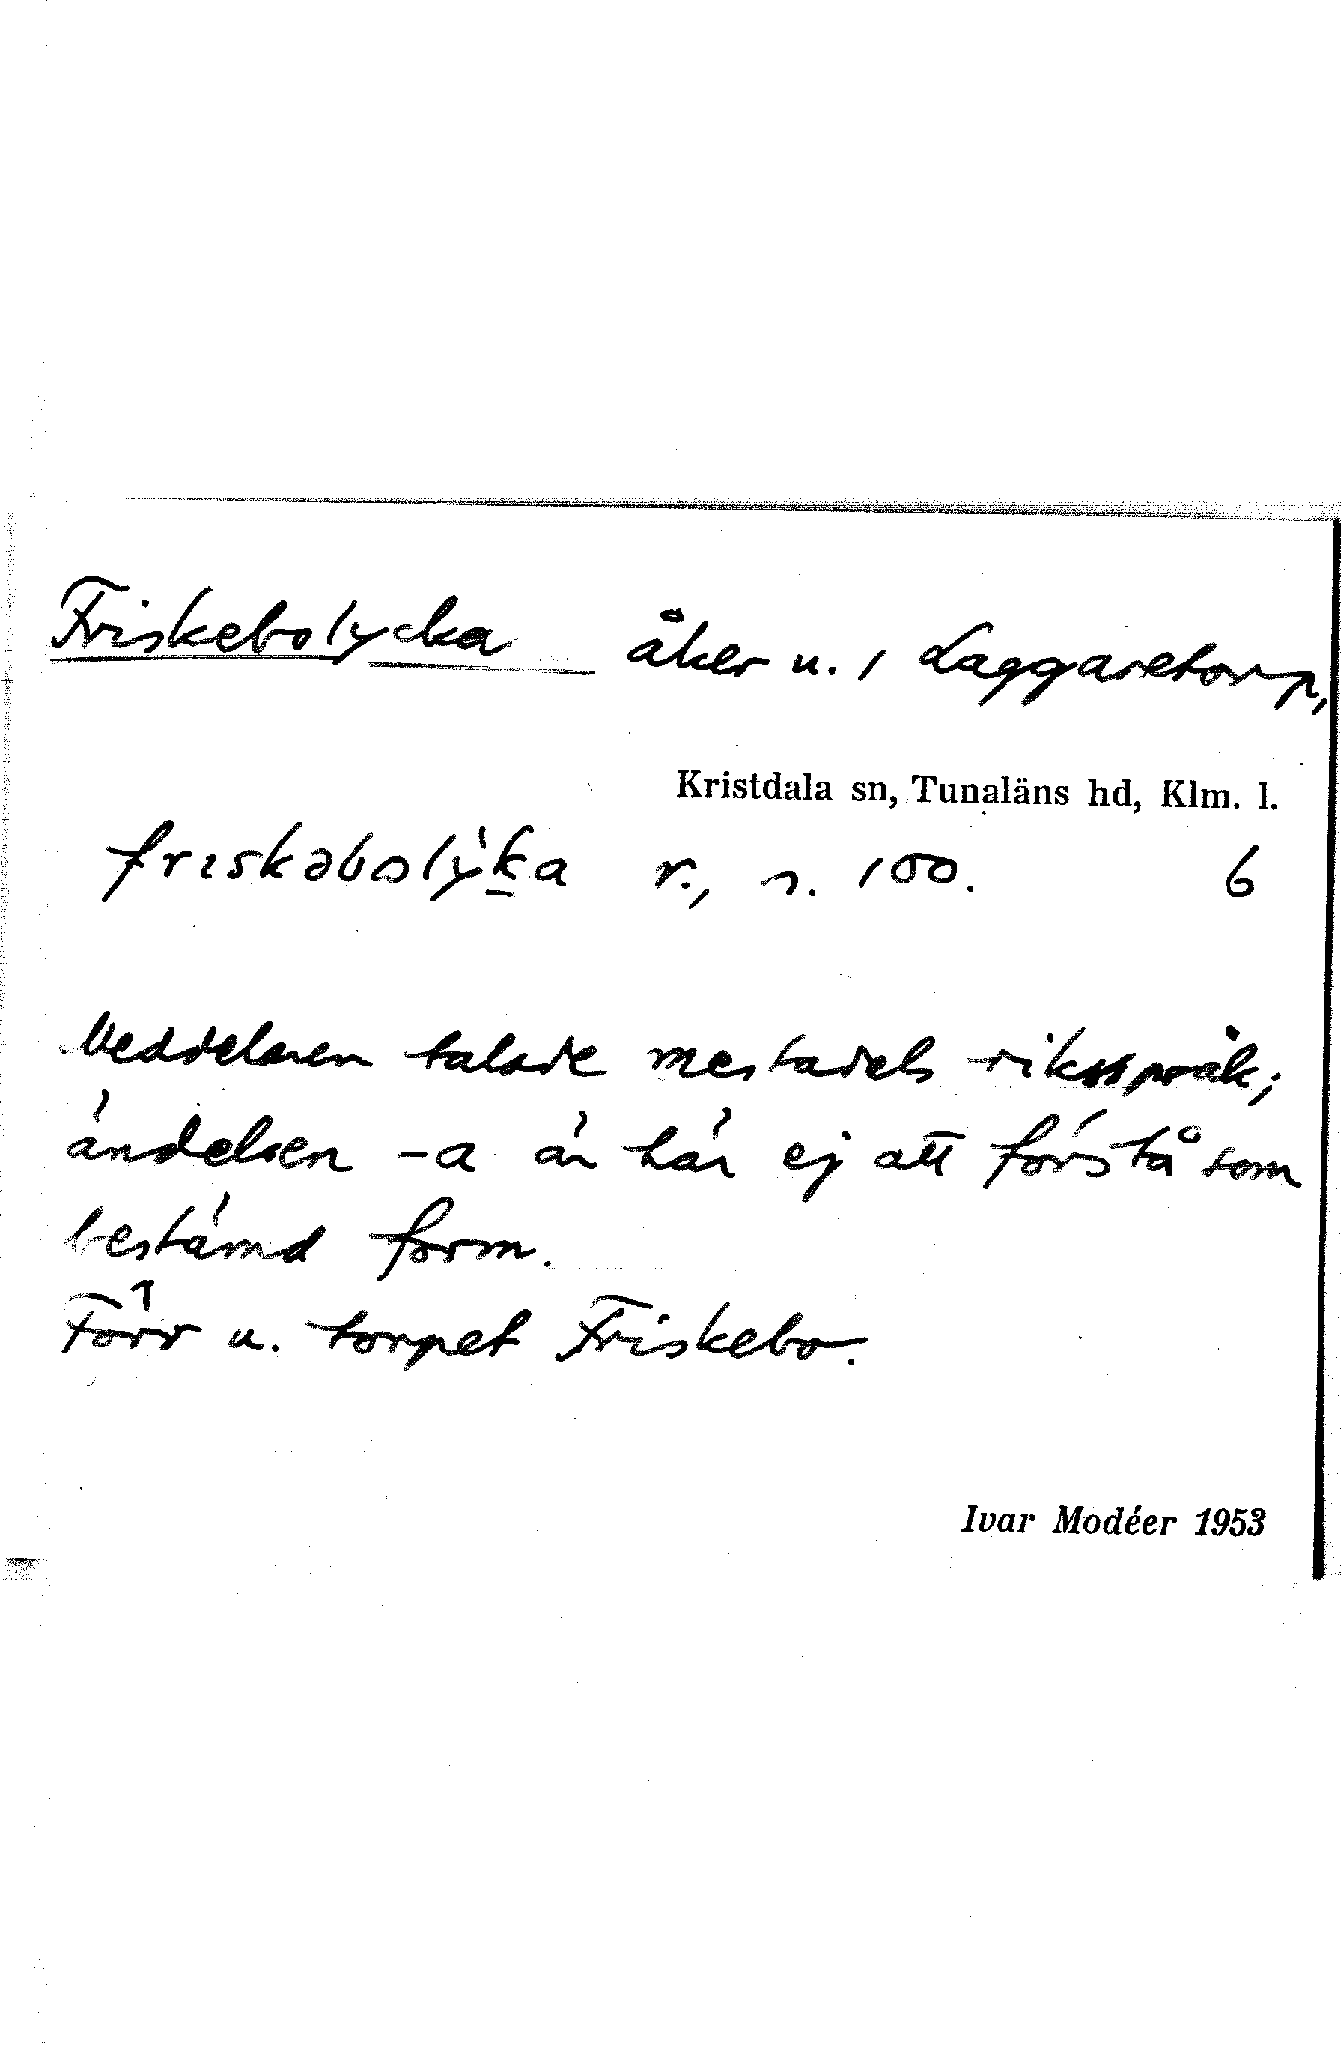 Friskebolycka åker u. 1 Laggaretorp,
Kristdala sn, Tunaläns hd, Klm. l.
frıskəbolỳk̲a r., n. 100. 6
Meddelaren talade mestadels riksspråk;
ändelsen -a är här ej att förstå som
bestämd form.
Förr u. torpet Friskebo.
Ivar Modéer 1953